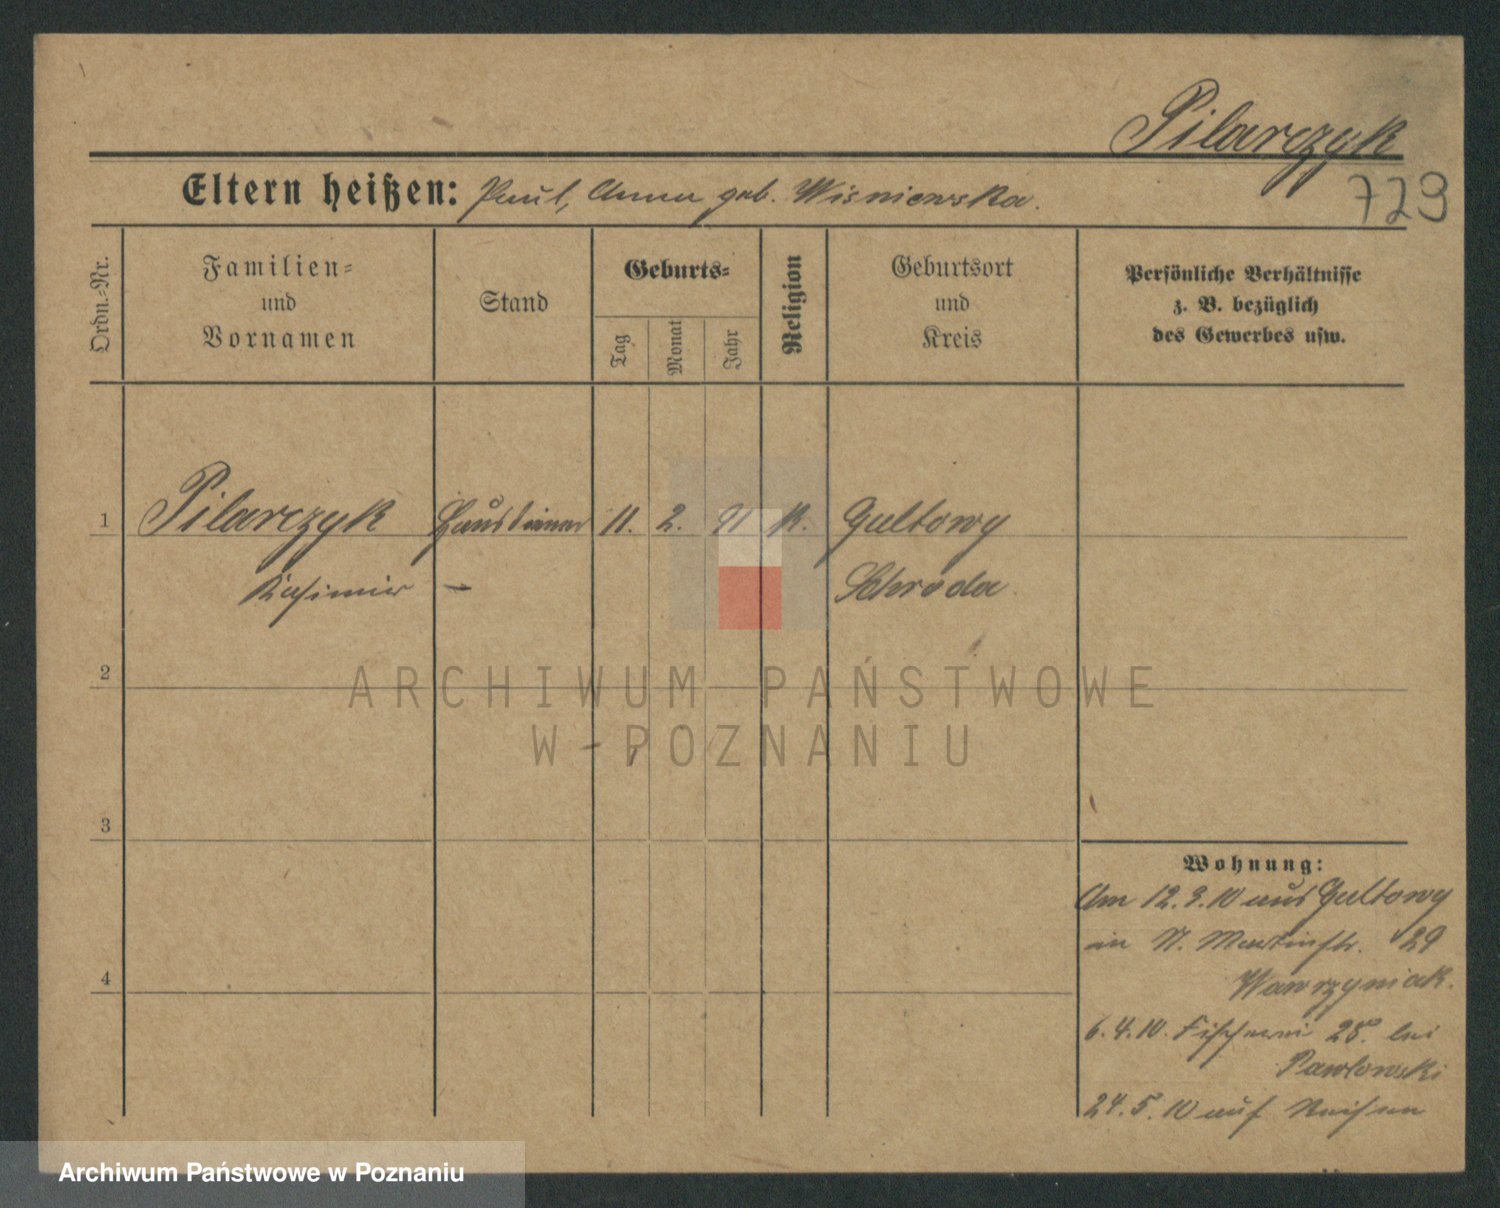 Pilarczyk
729
Eltern heißen: Paul, Anna geb. Wisniewska.
Ordn.-Nr.
Familien-
und
Vornamen
Stand
Geburts-
Tag
Monat
Jahr
Religion
Geburtsort
und
Kreis
Persönliche Verhältnisse
z. B. bezüglich
des Gewerbes usw.
1 Pilarczyk Hausdiener 11. 2. 91 K. Gultowy
Kasimir — Schroda
2
ARCHIWUM PAŃSTWOWE
W POZNANIU
3
Wohnung:
Am 12.3.10 aus Gultowy
in St. Martinstr. 29
4
Wawrzyniak.
6.4.10. Fischerei 25. bei
Pawlowski
24.5.10 auf Reisen
Archiwum Państwowe w Poznaniu